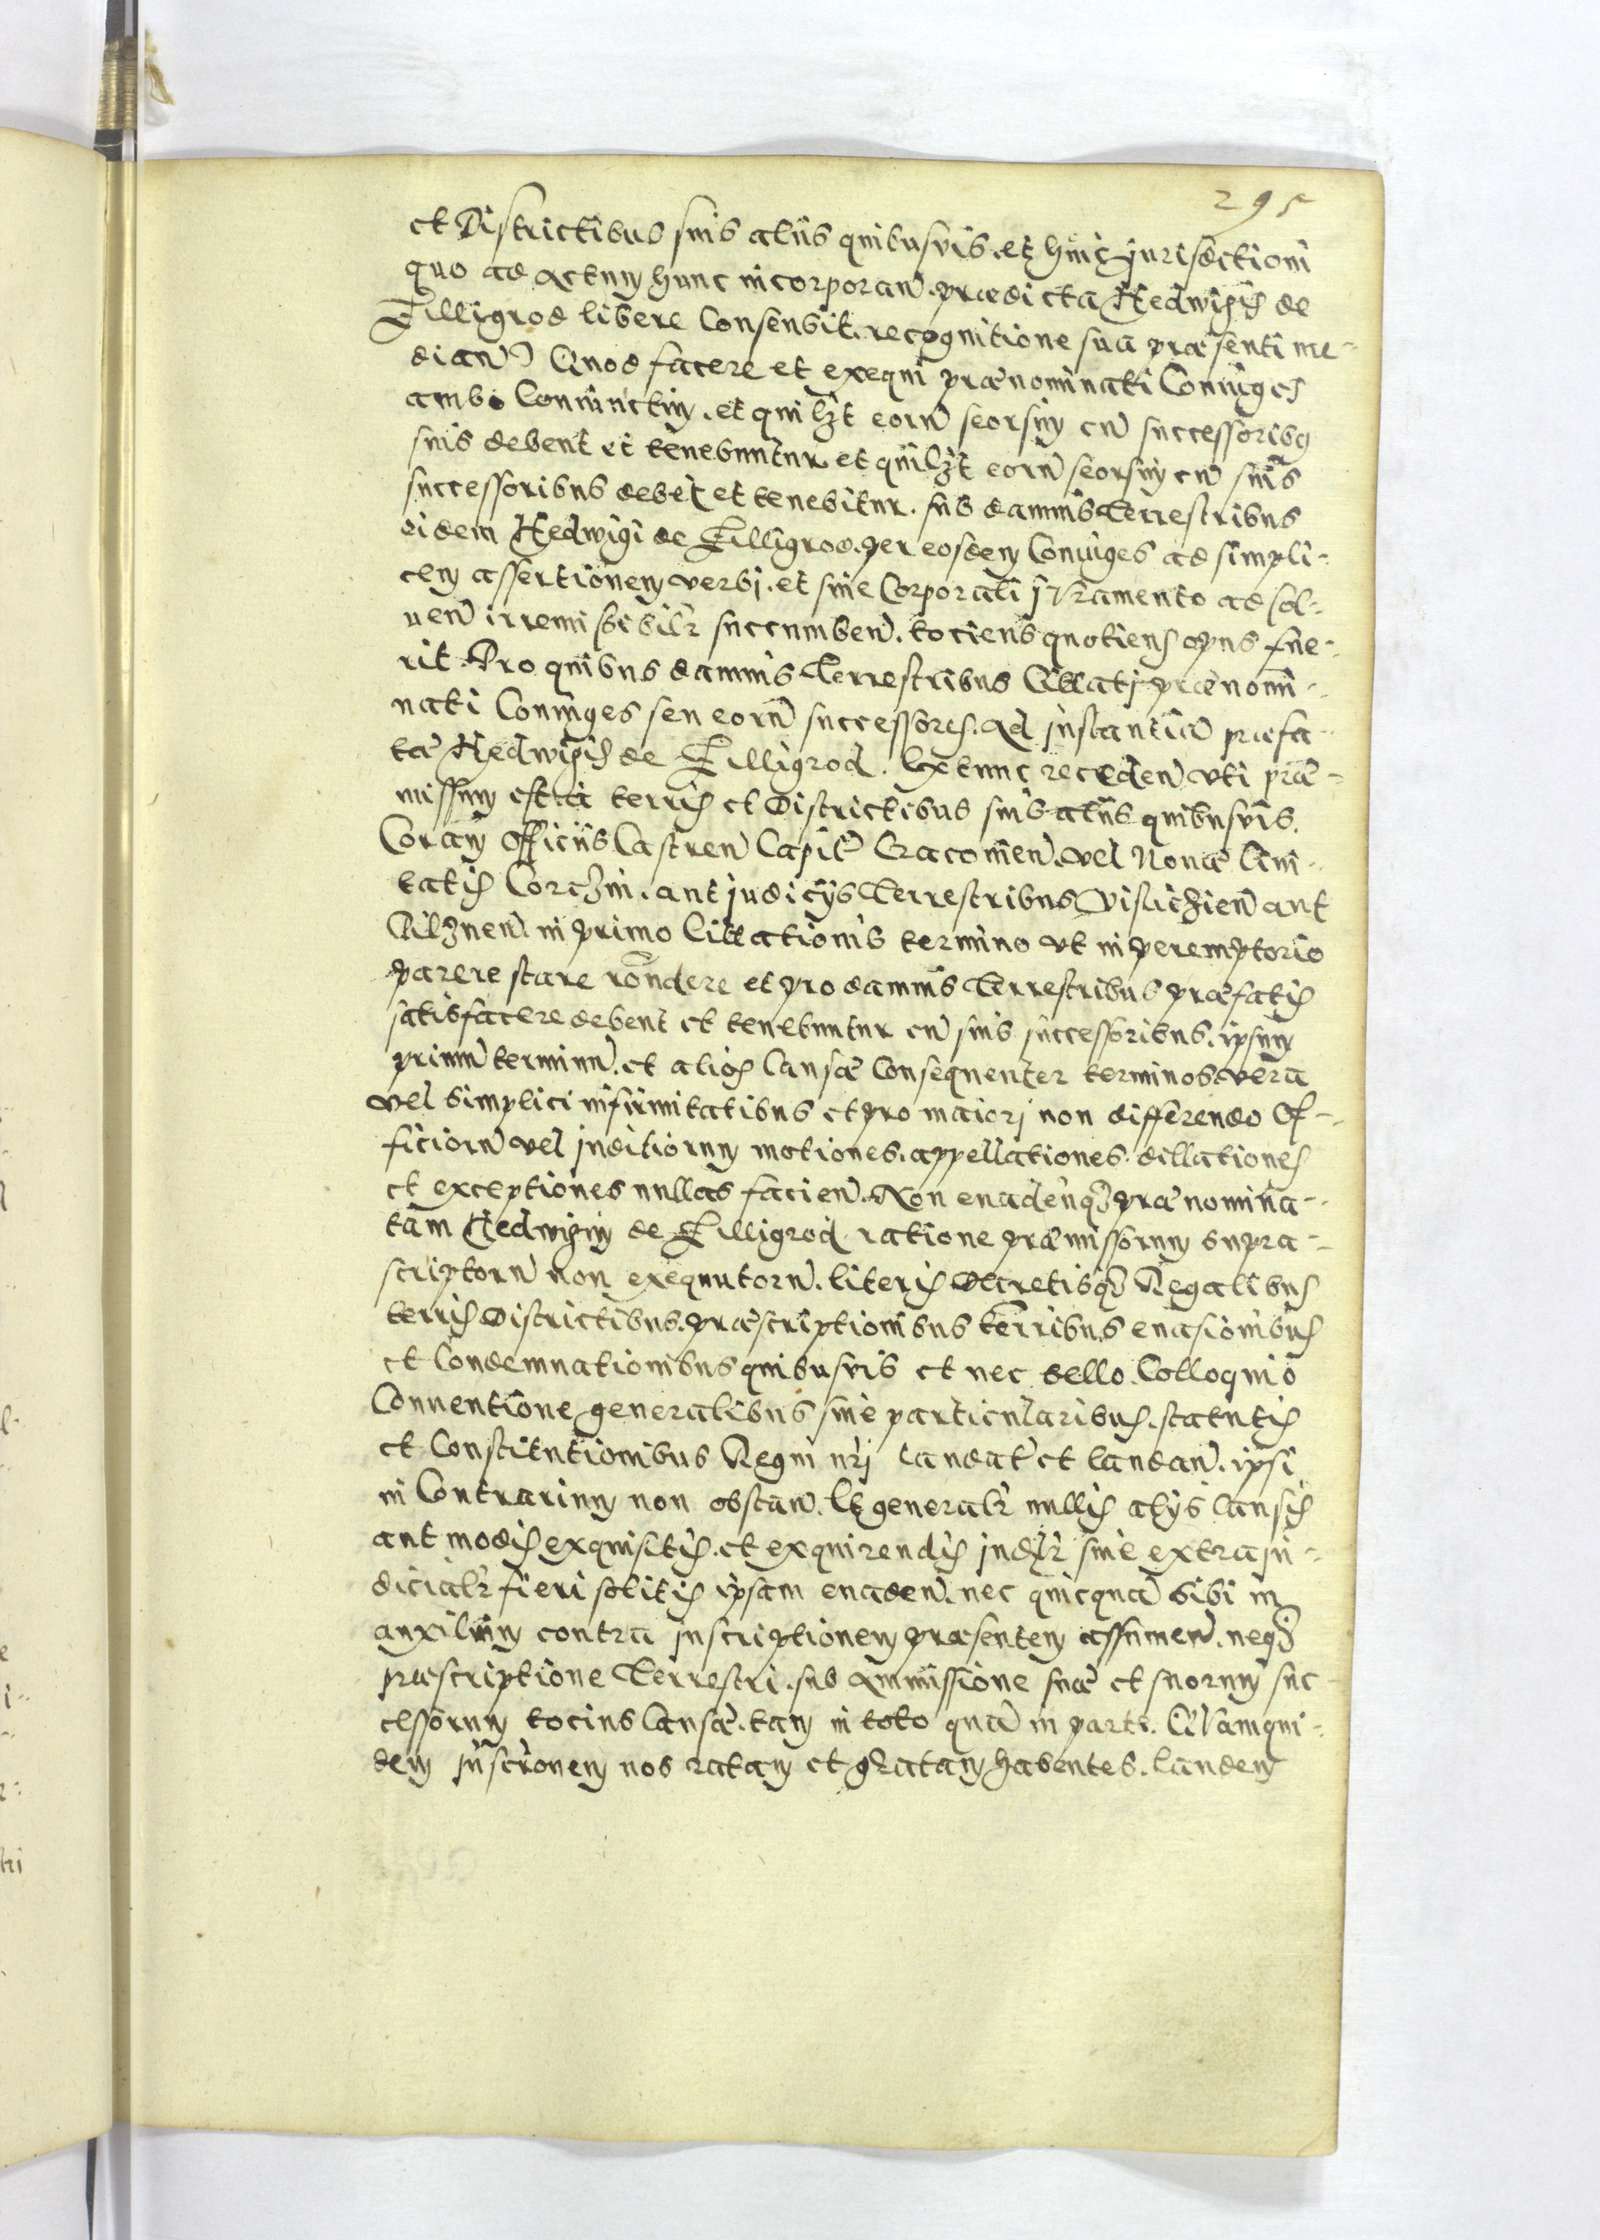 295
et Districtibus suis aliis quibusvis. et huic Jurisdictioni
quo ad Actum hunc incorporan̄. prædicta Hedwigis de
Filligrod libere Consensit. recognitione sua præsenti me-
dian̄ Quod facere et exequi prænominati Coniuges
ambo Coniunctim. et quilz̄t eorū seorsim cū successoribus
suis debent et tenebuntur et quilz̄t eorū seorsim cū suis
successoribus debet et tenebitur. sub damnis Terrestribus
eidem Hedwigi de Filligrod. per eosdem Coniuges ad simpli-
cem assertionem verbi. et sine Corporali Juramento ad sol-
uen̄ irremissibilr̄ succumben̄. tociens quotiens opus fue-
rit. Pro quibus damnis Terrestribus Citati prænomi-
nati Coniuges seu eorū successores. Ad instantiā præfa-
tæ Hedwigis de Filligrod. Ex tunc receden̄ uti præ-
missum est. a terris et Districtibus suis aliis quibusvis.
Coram Officiis Castren̄ Capit̄ Cracouien̄. vel Nouæ Ciui-
tatis Corczin. aut judicijs Terrestribus Visliczien̄ aut
Pilznen̄. in primo Citationis termino ut in peremptorio
parere stare rōndere et pro damnis Terrestribus præfatis
satisfacere debent et tenebuntur cū suis successoribus. ipsum
primū terminū. et alios Causæ Consequenter terminos. vera
vel simplici infirmitatibus et pro maiori non differendo Of-
ficiorū vel juditiorum motiones. appellationes. dillationes
et exceptiones nullas facien̄. Non euaden̄q3 prænomina-
tam Hedwigim de Filligrod ratione præmissorum supra-
scriptorū non exequutorū. literis Decretisq3 Regalibus
terris Districtibus. præscriptionibus terr̄ribus euasionibus
et Condemnationibus quibusvis et nec bello. Colloquio
Conuentione generalibus siue particularibus. statutis
et Constitutionibus Regni nr̄i laudat̄ et laudan̄. ipsi
in Contrarium non obstan̄. Et generalr̄ nullis alijs Causis
aut modis exquisitis. et exquirendis judlr̄ siue extraju-
dicialr̄ fieri solitis ipsam euaden̄. nec quicquā sibi in
auxilium contra inscriptionem præsentem assumen̄. neq3
præscriptione Terrestri. sub Ammissione suæ et suorum suc-
cessorum tocius Causæ. tam in toto quā in parte. Quamqui-
dem inscr̄onem nos ratam et gratam habentes. laudem